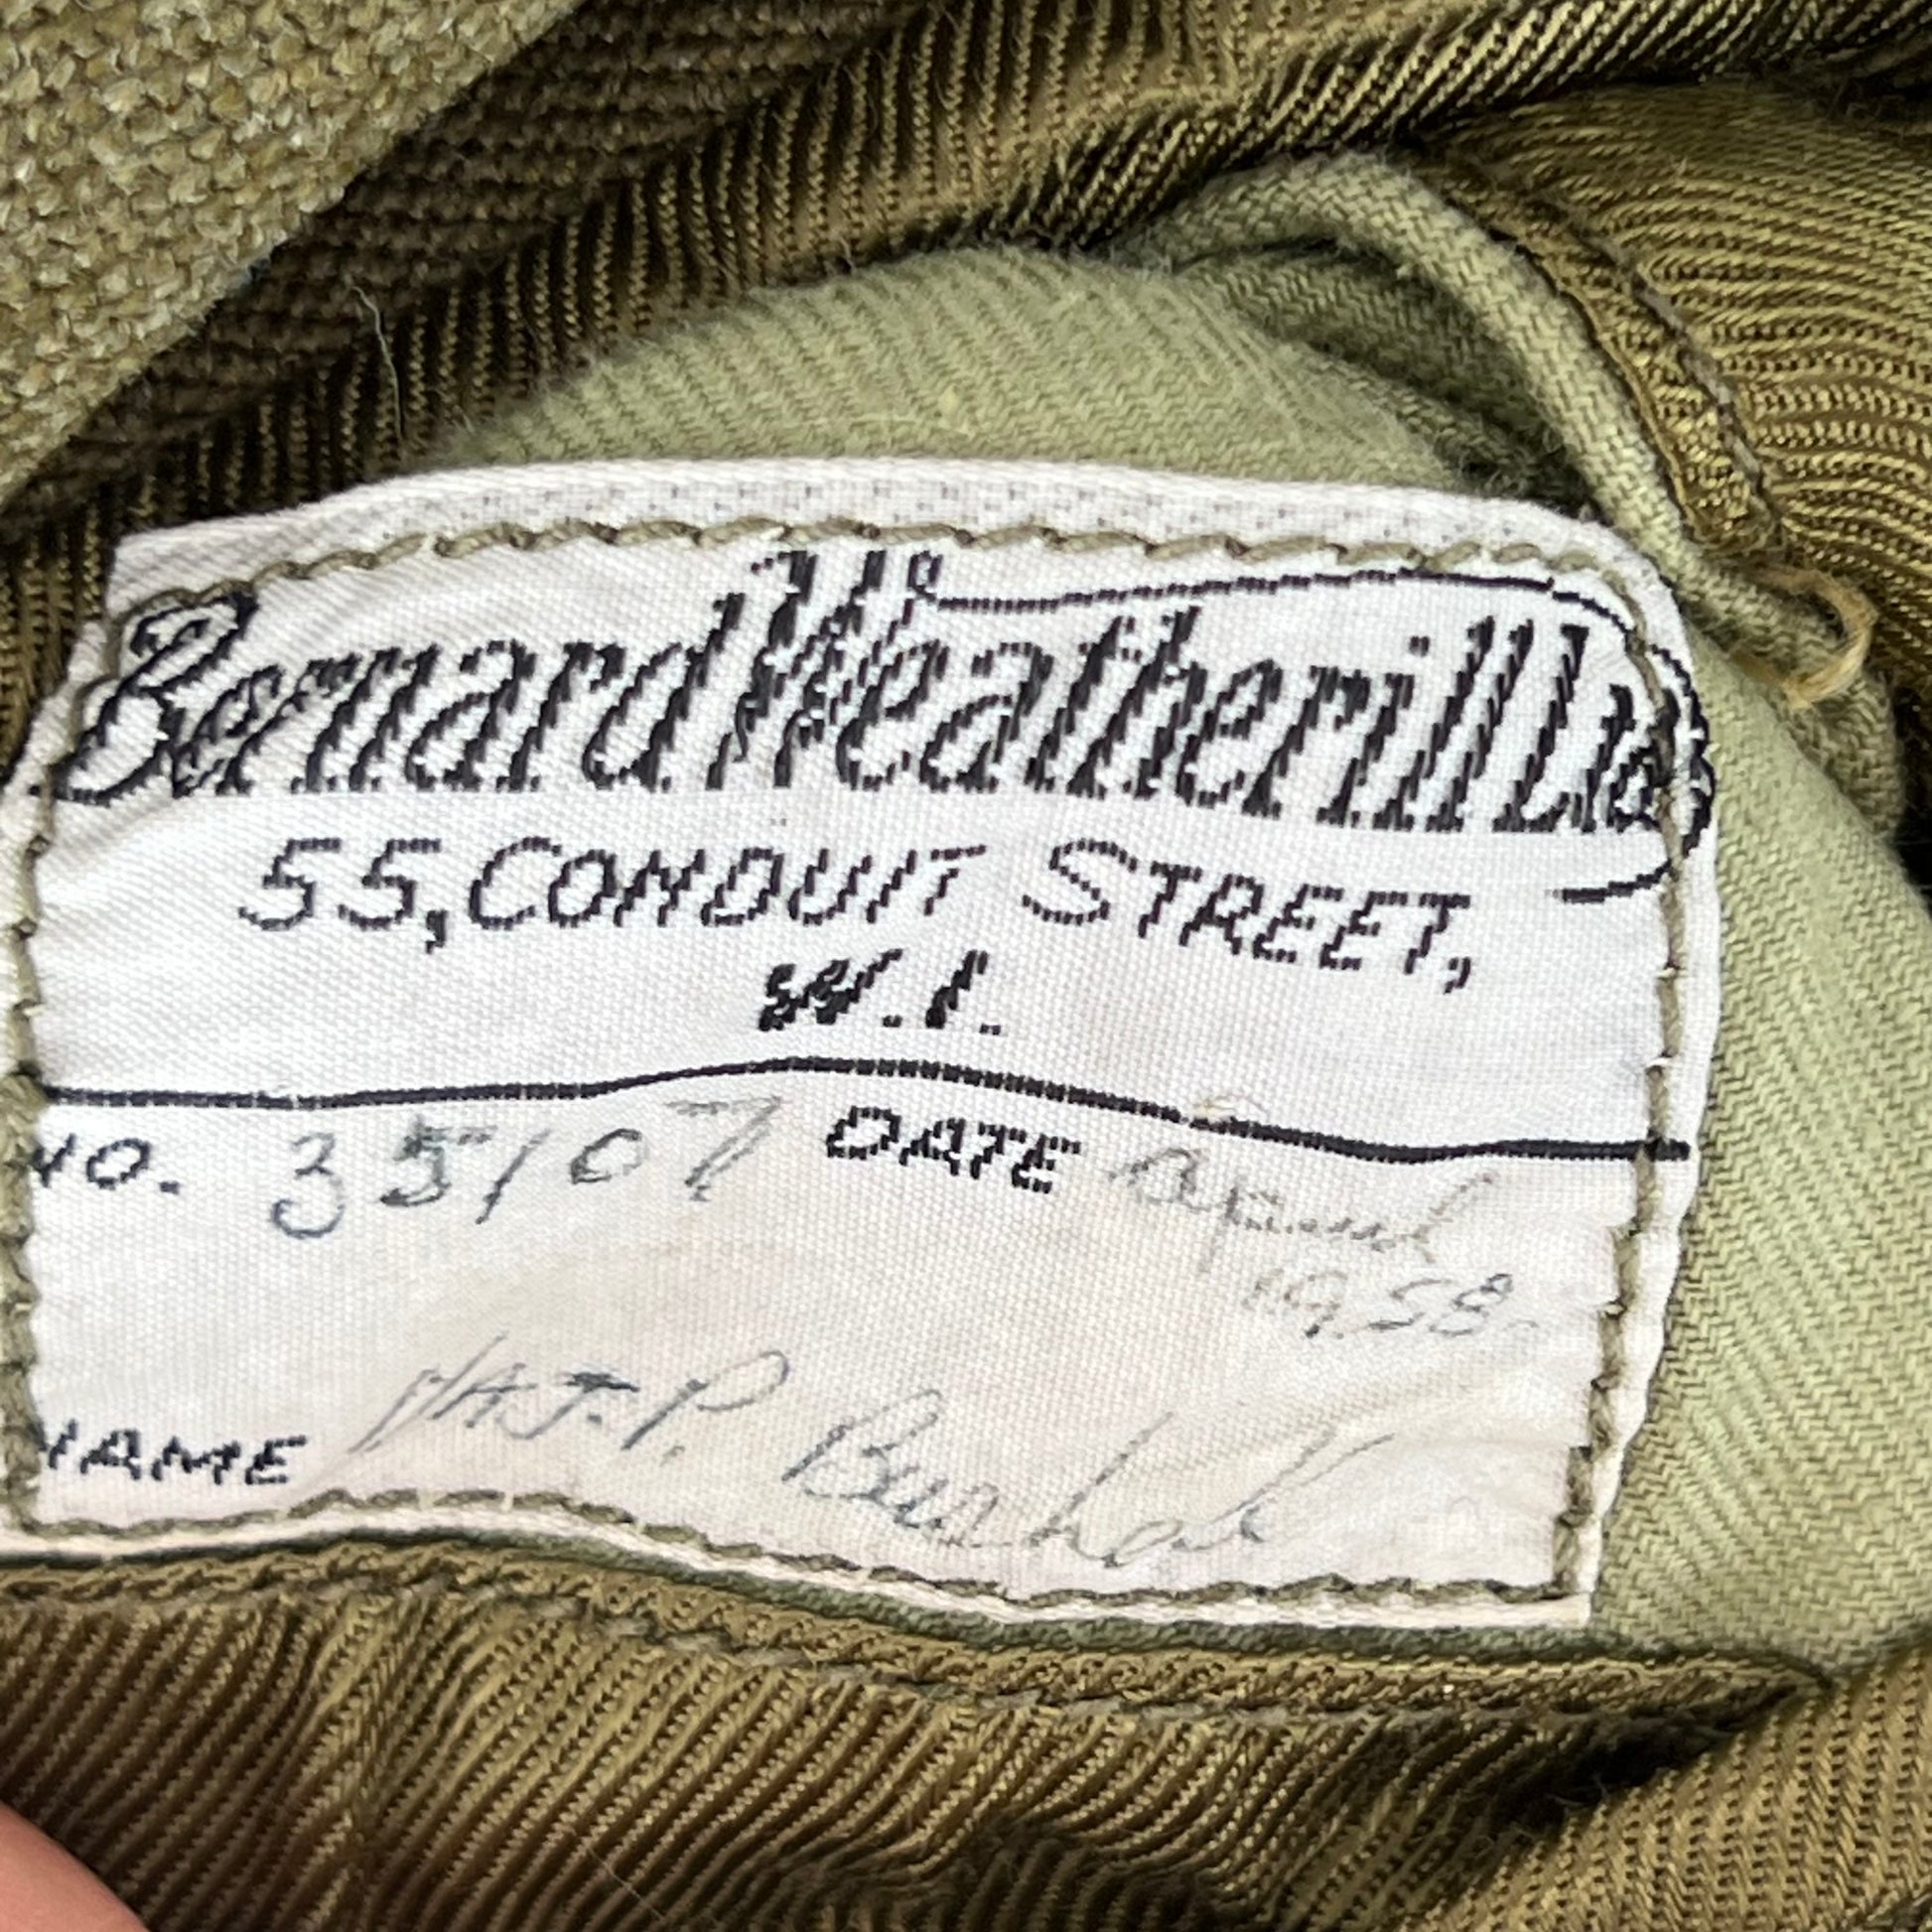 Bernard Weatherill Ltd
55, CONDUIT STREET,
W.1.
NO. 35107 DATE April
1958.
NAME MAJ. P.